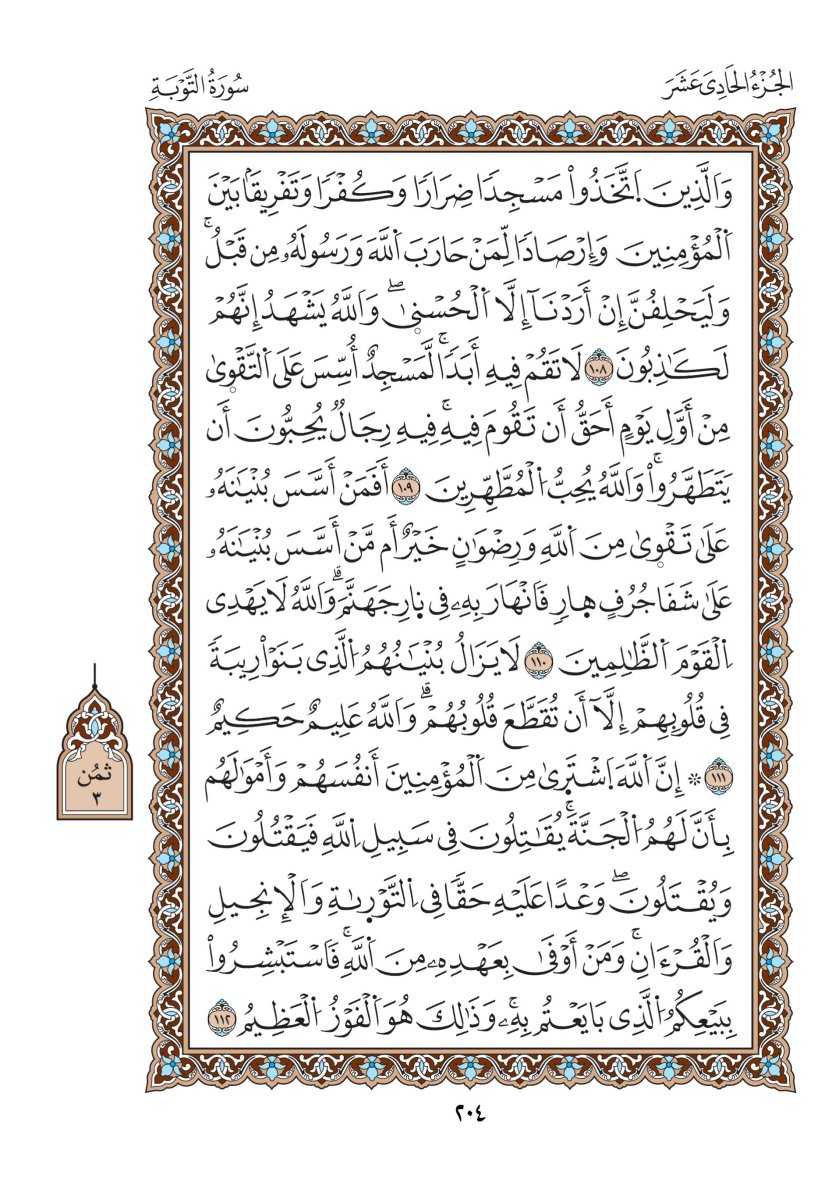 الجُزْءُ الحَادِىَ عَشَرَ
سُورَةُ التَّوْبَةِ
وَالَّذِينَ اَ۪تَّخَذُواْ مَسْجِدٗا ضِرَارٗا وَكُفْرٗا وَتَفْرِيقَۢا بَيْنَ
اَ۬لْمُؤْمِنِينَ وَإِرْصَادٗا لِّمَنْ حَارَبَ اَ۬للَّهَ وَرَسُولَهُۥ مِن قَبْلُۚ
وَلَيَحْلِفُنَّ إِنْ أَرَدْنَآ إِلَّا اَ۬لْحُسْن۪يٰۖ وَاللَّهُ يَشْهَدُ إِنَّهُمْ
لَكَٰذِبُونَ ١٠٨ لَا تَقُمْ فِيهِ أَبَدٗاۚ لَّمَسْجِدٌ أُسِّسَ عَلَى اَ۬لتَّقْو۪يٰ
مِنْ أَوَّلِ يَوْمٍ أَحَقُّ أَن تَقُومَ فِيهِۚ فِيهِ رِجَالٞ يُحِبُّونَ أَن
يَتَطَهَّرُواْۚ وَاللَّهُ يُحِبُّ اُ۬لْمُطَّهِّرِينَ ١٠٩ أَفَمَنْ أَسَّسَ بُنْيَٰنَهُۥ
عَلَىٰ تَقْو۪يٰ مِنَ اَ۬للَّهِ وَرِضْوَٰنٍ خَيْرٌ أَم مَّنْ أَسَّسَ بُنْيَٰنَهُۥ
عَلَىٰ شَفَا جُرُفٍ ه۪ارٖ فَانْهَارَ بِهِۦ فِي ن۪ارِ جَهَنَّمَۗ وَاللَّهُ لَا يَهْدِى
اِ۬لْقَوْمَ اَ۬لظَّٰلِمِينَ ١١٠ لَا يَزَالُ بُنْيَٰنُهُمُ اُ۬لَّذِى بَنَوْاْ رِيبَةٗ
فِى قُلُوبِهِمْ إِلَّآ أَن تُقَطَّعَ قُلُوبُهُمْۗ وَاللَّهُ عَلِيمٌ حَكِيمٌ
١١١ ۞ إِنَّ اَ۬للَّهَ اَ۪شْتَر۪ىٰ مِنَ اَ۬لْمُؤْمِنِينَ أَنفُسَهُمْ وَأَمْوَٰلَهُم
بِأَنَّ لَهُمُ اُ۬لْجَنَّةَۚ يُقَٰتِلُونَ فِى سَبِيلِ اِ۬للَّهِ فَيَقْتُلُونَ
وَيُقْتَلُونَۖ وَعْدًا عَلَيْهِ حَقّٗا فِى اِ۬لتَّوْر۪ىٰةِ وَالْإِنجِيلِ
وَالْقُرْءَانِۚ وَمَنْ أَوْفَىٰ بِعَهْدِهِۦ مِنَ اَ۬للَّهِۚ فَاسْتَبْشِرُواْ
بِبَيْعِكُمُ اُ۬لَّذِى بَايَعْتُم بِهِۦۚ وَذَٰلِكَ هُوَ اَ۬لْفَوْزُ اُ۬لْعَظِيمُ ١١٢
ثُمُن
٣
٢٠٤